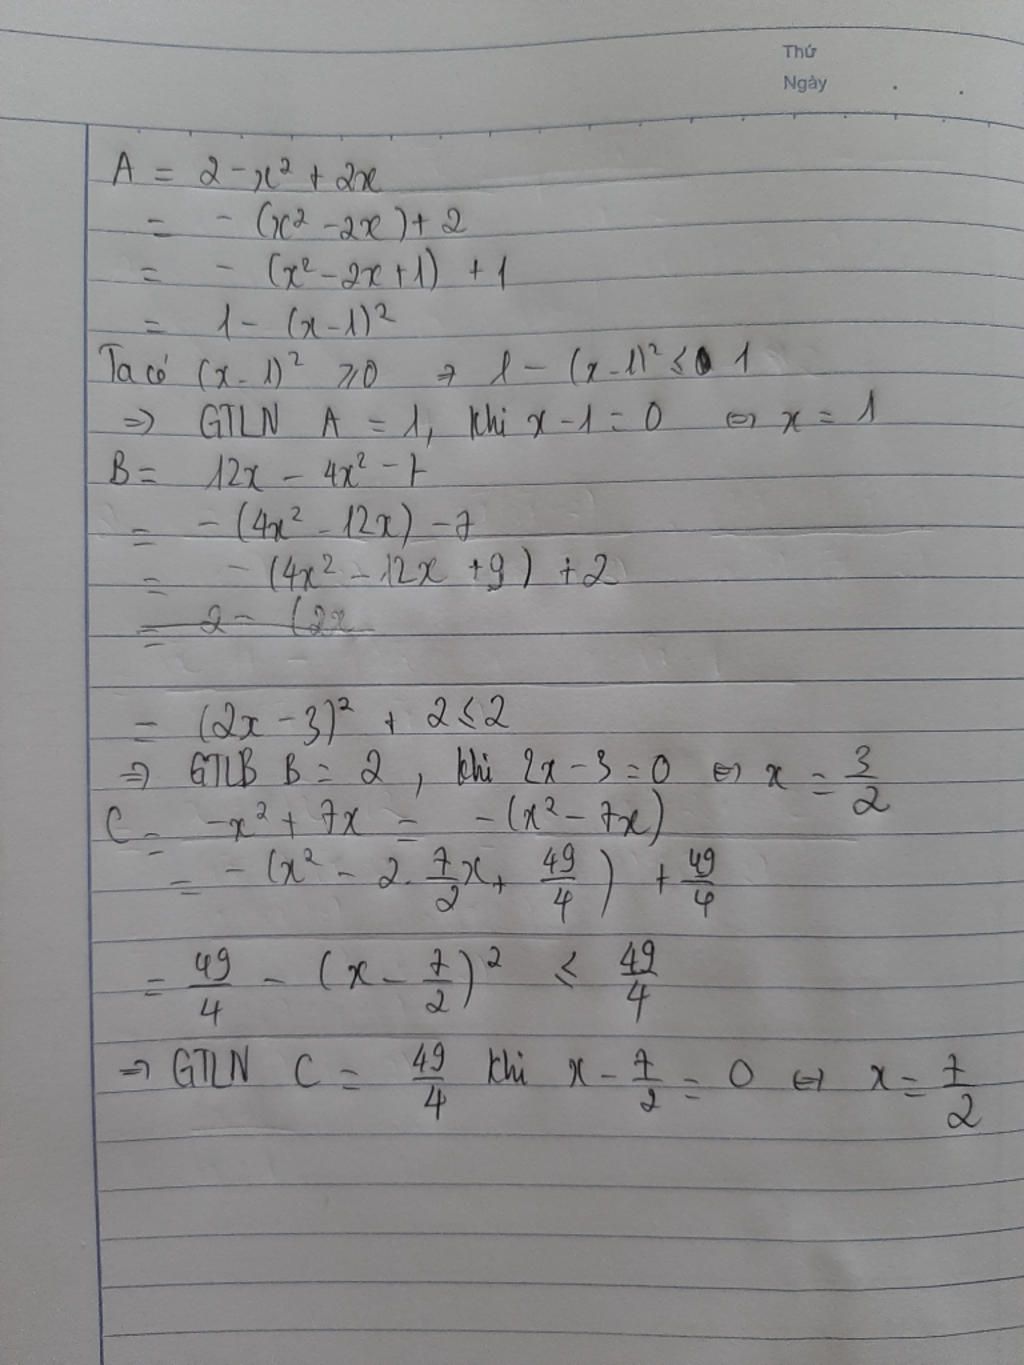 Thứ
Ngày
A = 2 - x² + 2x
= - (x² - 2x) + 2
= - (x² - 2x + 1) + 1
= 1 - (x - 1)²
Ta có (x - 1)² ≥ 0 → 1 - (x - 1)² ≤ 1
⇒ GTLN A = 1, khi x - 1 = 0 ⇔ x = 1
B = 12x - 4x² - 7
= - (4x² - 12x) - 7
= - (4x² - 12x + 9) + 2
= 2 - (2x
= (2x - 3)² + 2 ≤ 2
⇒ GTLB B = 2, khi 2x - 3 = 0 ⇔ x = 3/2
C = -x² + 7x = - (x² - 7x)
= - (x² - 2. 7/2 x + 49/4) + 49/4
= 49/4 - (x - 7/2)² ≤ 49/4
⇒ GTLN C = 49/4 khi x - 7/2 = 0 ⇔ x = 7/2